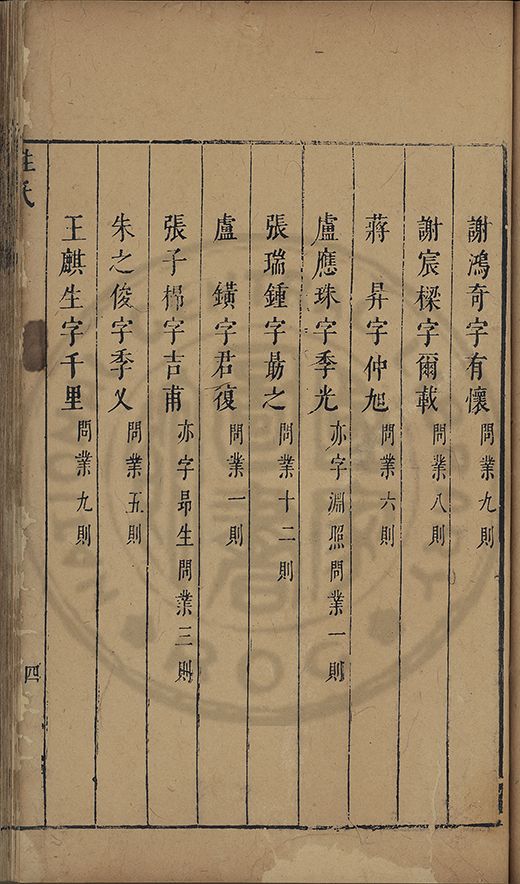 謝鴻奇字有懷 問業九則
謝宸樑字爾載 問業八則
蔣 昇字仲旭 問業六則
盧應珠字季光 亦字淵照問業一則
張瑞鍾字勗之 問業十二則
盧 鐄字君復 問業一則
張子 字吉甫 亦字昻生問業三則
朱之俊字季乂 問業五則
王麒生字千里 問業九則
四